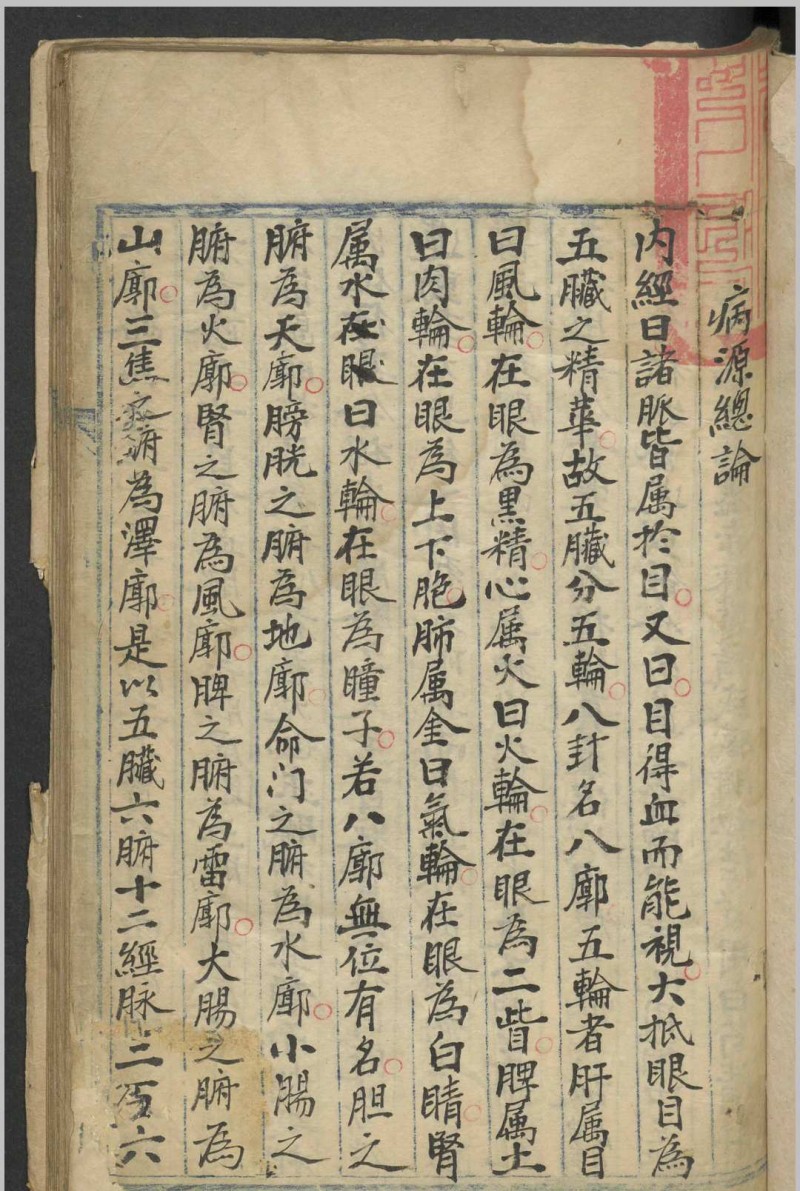 病源總論
内經曰諸脈皆属於目又曰目得血而能視大抵眼目為
五臟之精華故五臟分五輪八封名八廓五輪者肝属目
曰風輪在眼為黒精心属火曰火輪在眼為二眥脾属土
曰肉輪在眼為上下胞肺属金曰氣輪在眼為白睛腎
属水在眼曰水輪在眼為瞳子若八廓無位有名胆之
腑為天廓膀胱之腑為地廓命门之腑為水廓小腸之
腑為火廓腎之腑為風廓脾之腑為雷廓大腸之腑為
山廓三焦之腑為澤廓是以五臟六腑十二經脉三百六